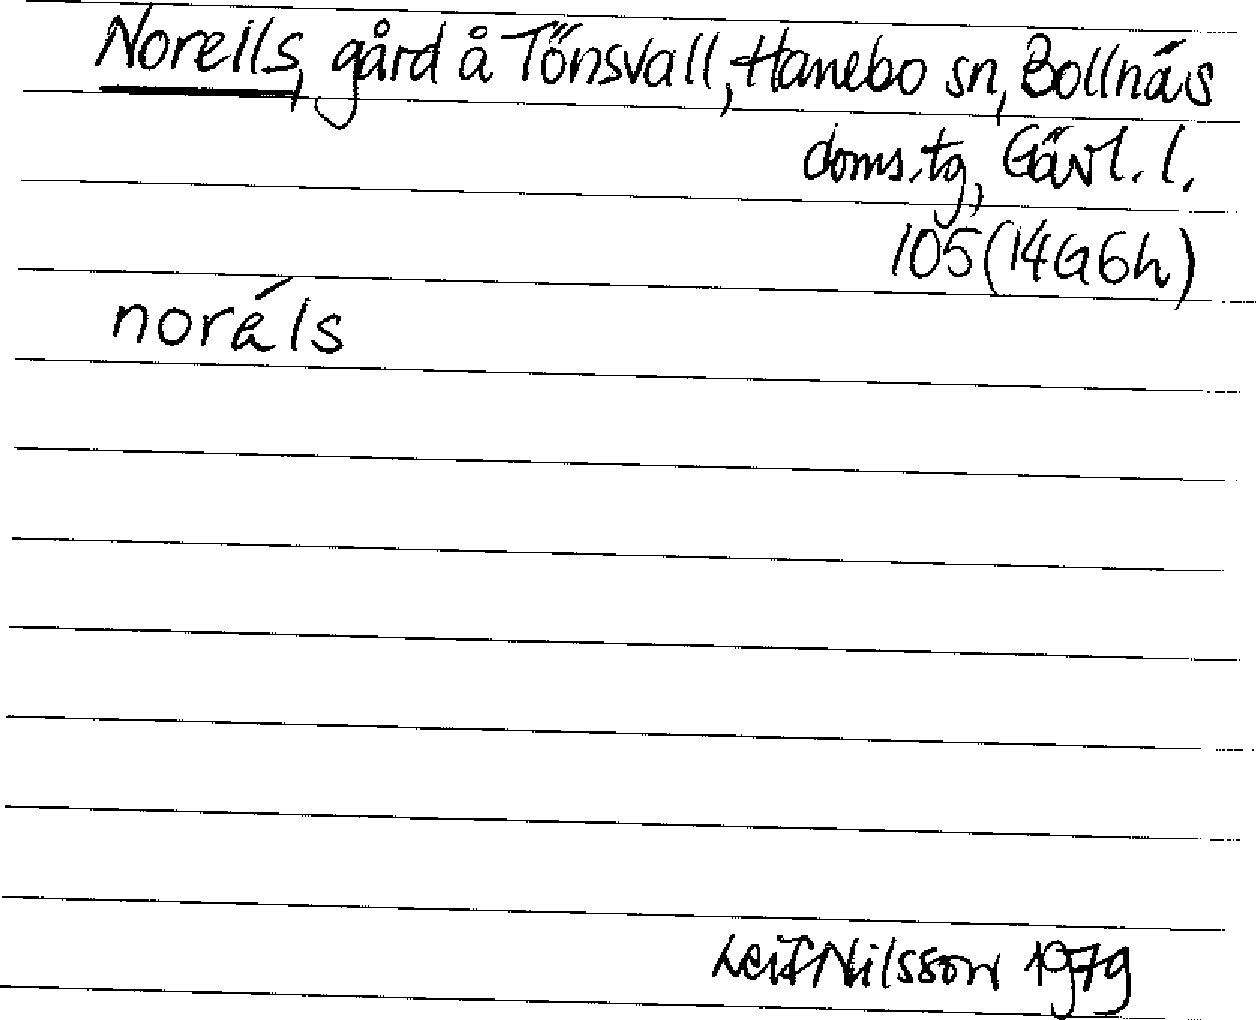 Norells, gård å Tönsvall, Hanebo sn, Bollnäs
doms.tg, Gävl. l.
105 (14G6h)
norä́ls
Leif Nilsson 1979